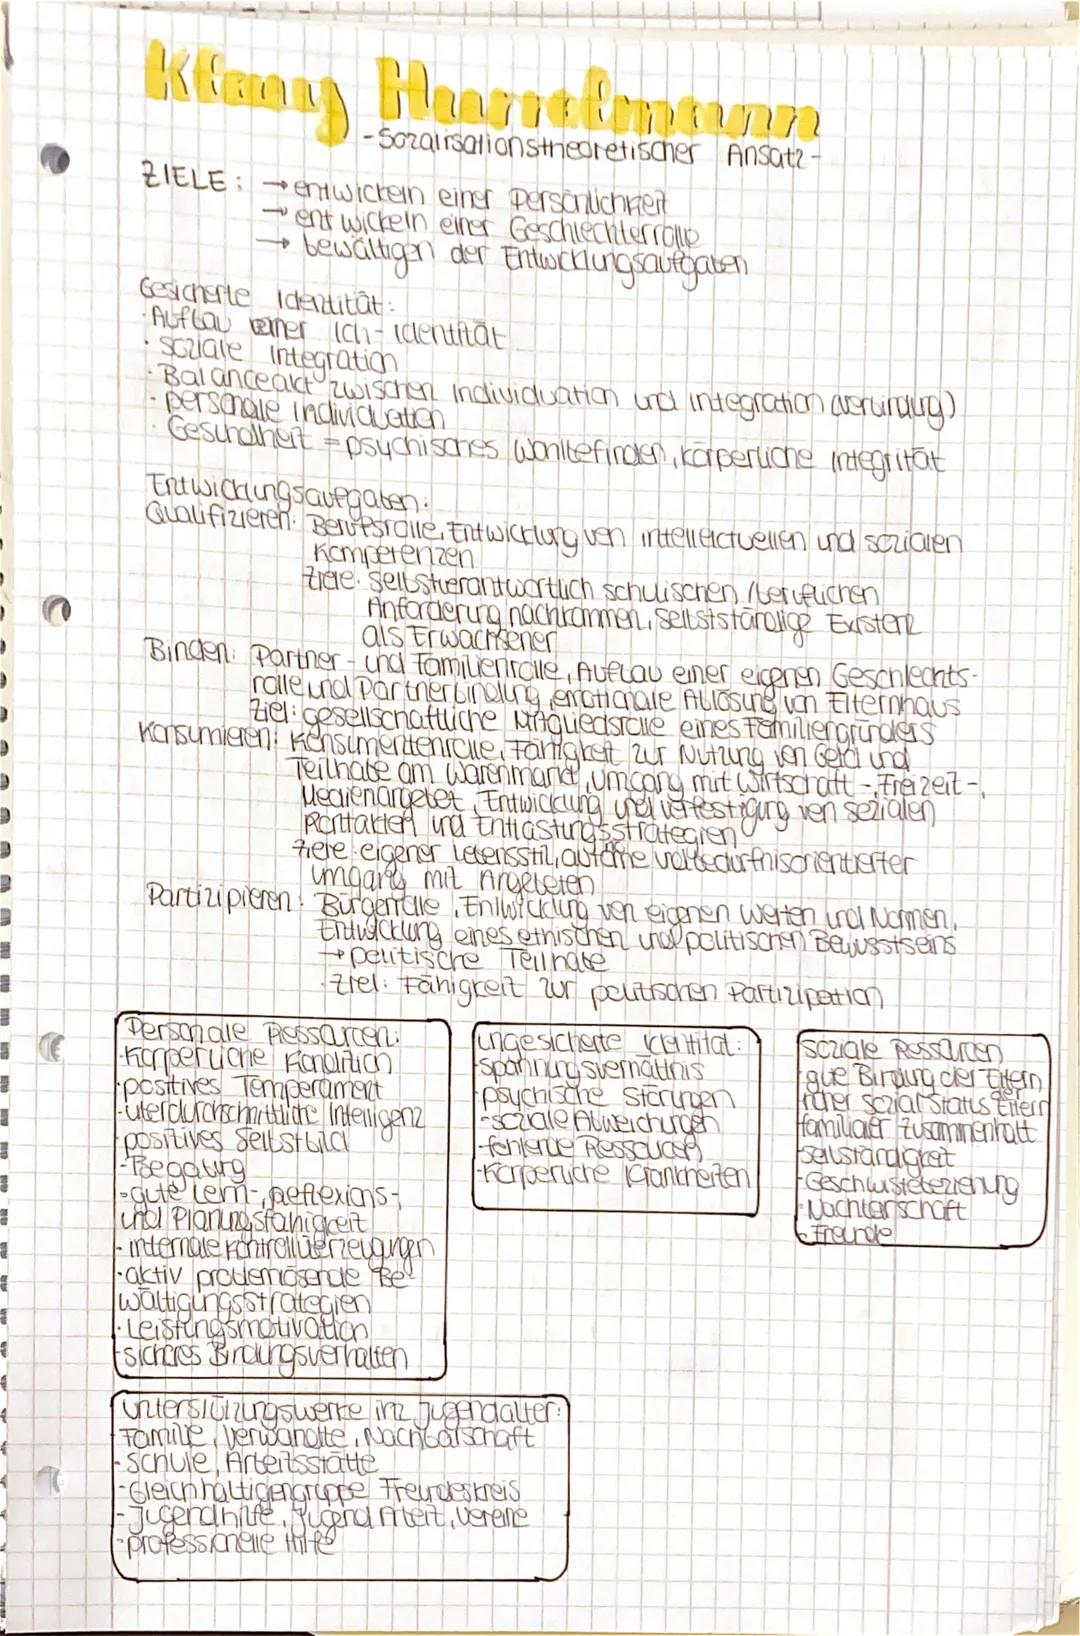 Klaus Hurrelmann
- Sozialisationstheoretischer Ansatz -
ZIELE: → entwickeln einer Persönlichkeit
→ entwickeln einer Geschlechterrolle
→ bewältigen der Entwicklungsaufgaben
Gesicherte Identität:
· Aufbau einer Ich-identität
· soziale Integration
· Balanceakt zwischen Individuation und integration (Verbindung)
· personale individuation
· Gesundheit = psychisches Wohlbefinden, körperliche Integrität
Entwicklungsaufgaben:
Qualifizieren: Berufsrolle, Entwicklung von intellektuellen und sozialen
Kompetenzen
Ziele: selbstverantwortlich schulischen / beruflichen
Anforderung nachkommen, selbstständige Existenz
als Erwachsener
Binden: Partner - und Familienrolle, Aufbau einer eigenen Geschlechts-
rolle und Partnerbindung, emotionale Ablösung von Elternhaus
Ziel: gesellschaftliche Mitgliedsrolle eines Familiengründers
Konsumieren: Konsumentenrolle, Fähigkeit zur Nutzung von Geld und
Teilhabe am Warenmarkt, Umgang mit Wirtschaft -, Freizeit -,
Medienangebot, Entwicklung und verfestigung von sozialen
Kontakten und Entlastungsstrategien
Ziele: eigener Lebensstil, autonome bedürfnisorientierter
umgang mit Angeboten
Partizipieren: Bürgerrolle, Entwicklung von eigenen Werten und Normen,
Entwicklung eines ethischen und politischen Bewusstseins
→ politische Teilhabe
· Ziel: Fähigkeit zur politischen Partizipation
Personale Ressourcen:
- Körperliche Kondition
· positives Temperament
- überdurchschnittliche Intelligenz
positives Selbstbild
- Begabung
· gute Lern-, Reflexions-,
und Planungsfähigkeit
- internale Kontrollüberzeugungen
· aktiv problemlösende Be-
wältigungsstrategien
· Leistungsmotivation
- sicheres Bindungsverhalten
ungesicherte Identität:
- spannungsverhältnis
- psychische störungen
- soziale Abweichungen
- fehlende Ressourcen
- Körperliche Krankheiten
soziale Ressourcen
gute Bindung der Eltern
hoher sozial Status Eltern
familiärer Zusammenhalt
- Selbständigkeit
- Geschwisterbeziehung
· Nachbarschaft
- Freunde
Unterstützungswerke im Jugendalter:
- Familie, Verwandte, Nachbarschaft
- Schule, Arbeitsstätte
- Gleichaltigengruppe Freundeskreis
- Jugendhilfe, Jugend Arbeit, Vereine
- professionelle Hilfe